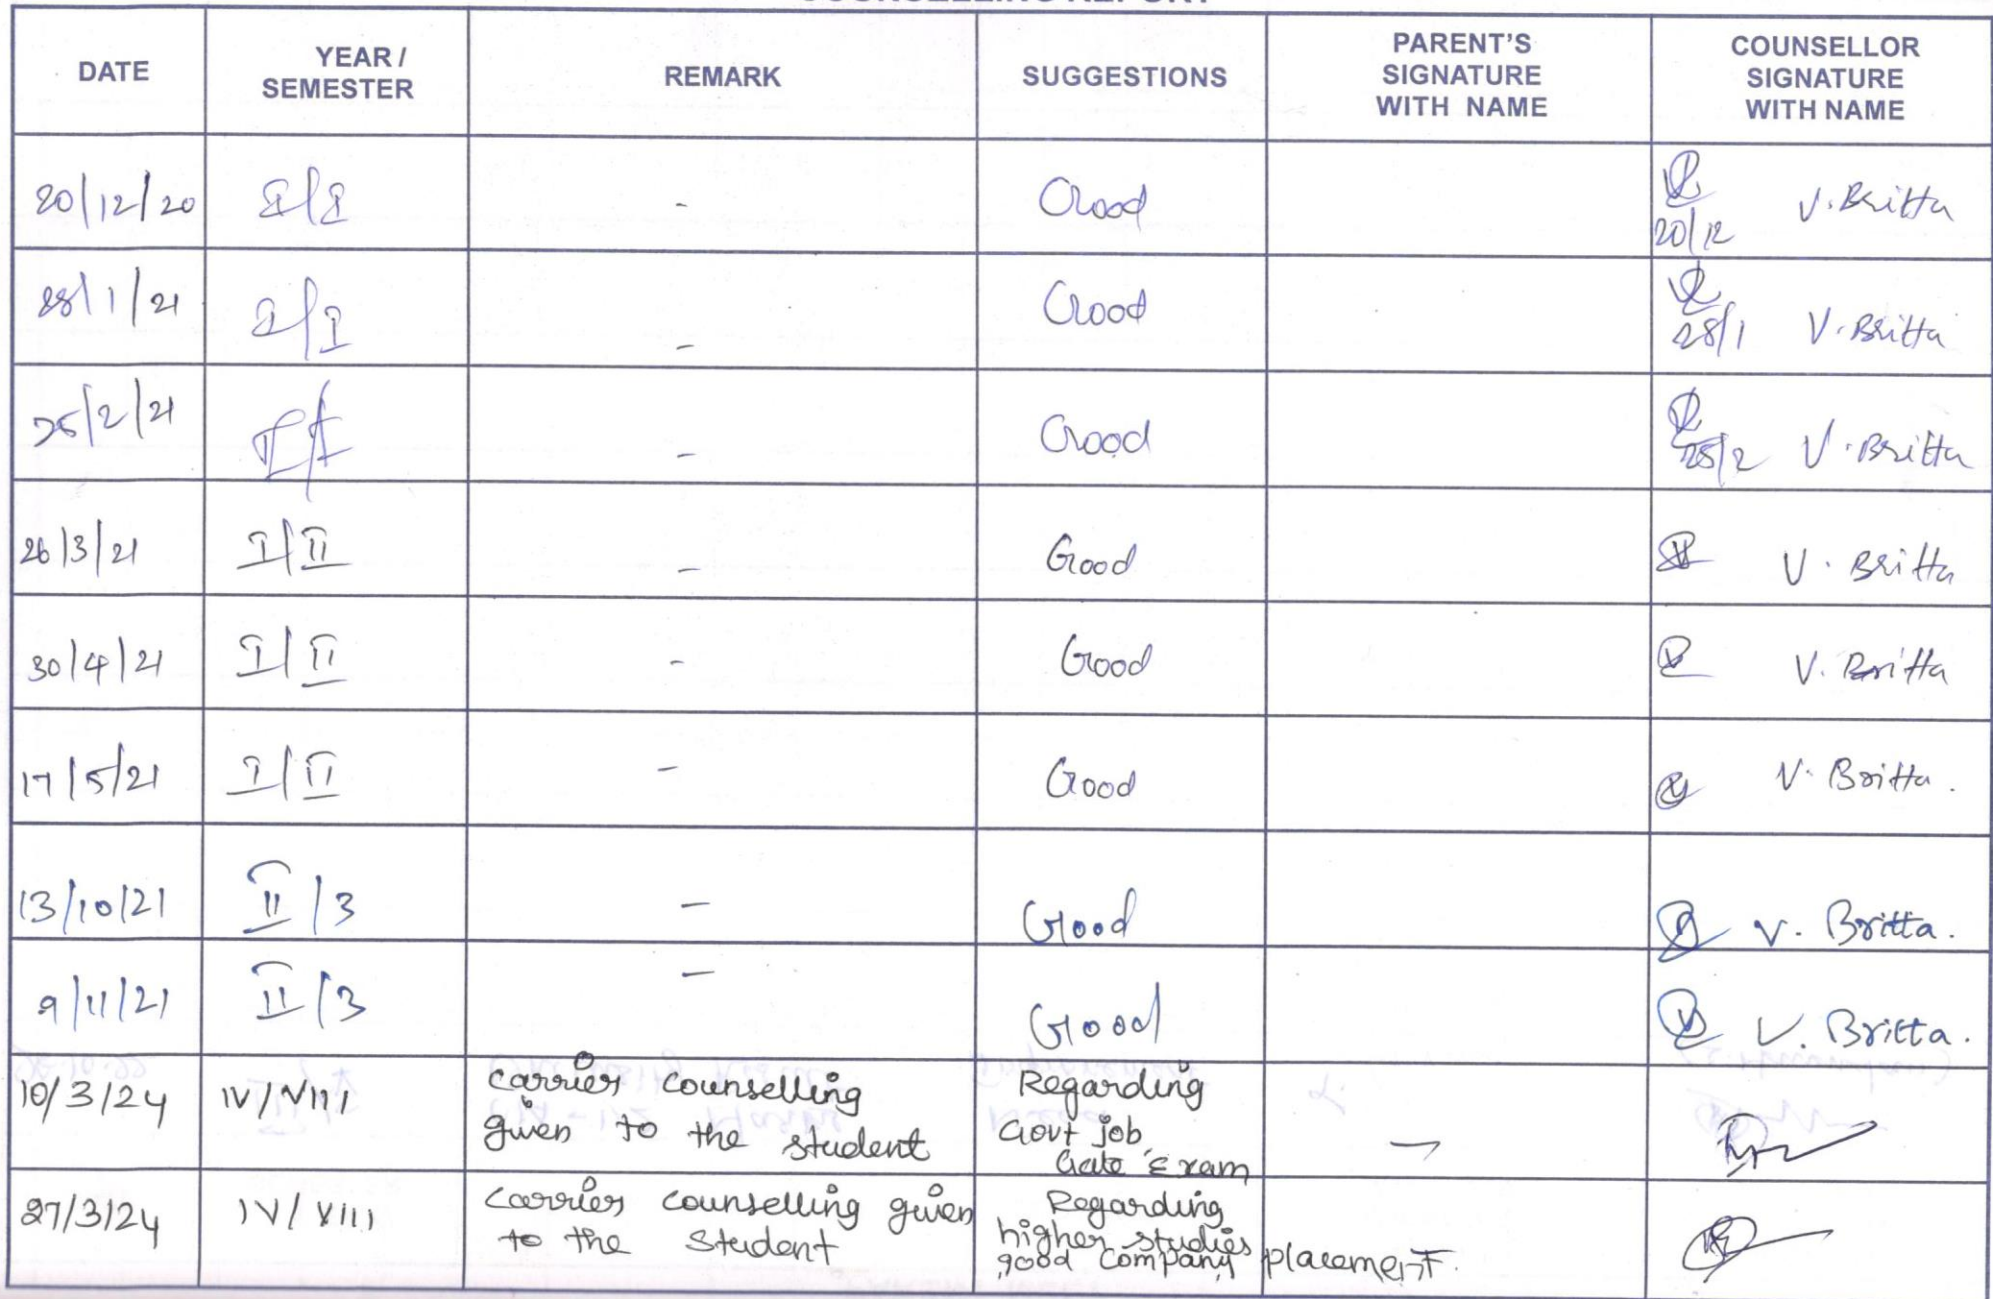 COUNSELLING REPORT
DATE
YEAR /
SEMESTER
REMARK
SUGGESTIONS
PARENT'S
SIGNATURE
WITH NAME
COUNSELLOR
SIGNATURE
WITH NAME
20/12/20 I/I - Good 20/12 V. Britta
28/1/21 I/I - Good 28/1 V. Britta
25/2/21 I/I - Good 25/2 V. Britta
26/3/21 I/II - Good V. Britta
30/4/21 I/II - Good V. Britta
17/5/21 I/II - Good V. Britta.
13/10/21 II/3 - Good V. Britta.
9/11/21 II/3 - Good V. Britta.
10/3/24 IV/VIII
carrier counselling
given to the student
Regarding
Govt job,
Gate Exam
-
27/3/24 IV/VIII
carrier counselling given
to the student
Regarding
higher studies
good company placement.